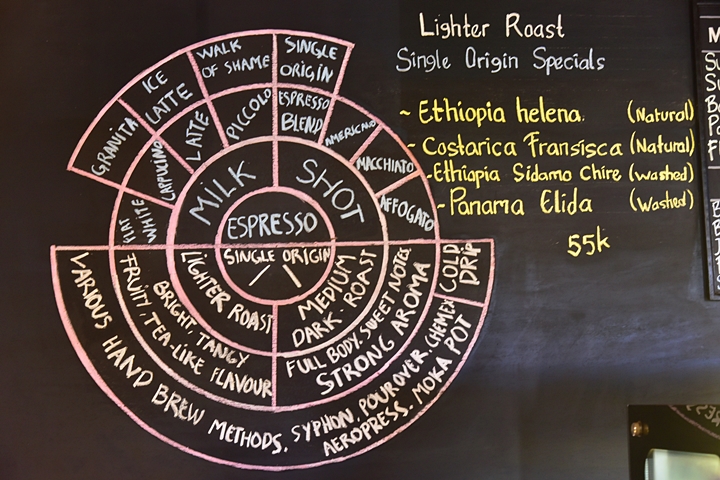 Lighter Roast
Single Origin Specials
~ Ethiopia helena. (Natural)
- Costarica Fransisca (Natural)
- Ethiapia Sidamo Chire (washed)
- Panama Elida (Washed)
55k
GRANITA
ICE LATTE
WALK OF SHAME
SINGLE ORIGIN
FLAT WHITE
CAPPUCINO
LATTE
PICCOLO
ESPRESSO BLEND
AMERICANO
MACCHIATO
AFFOGATO
MILK
SHOT
ESPRESSO
SINGLE ORIGIN
LIGHTER ROAST
MEDIUM
DARK - ROAST
BRIGHT, TANGY
FRUITY, TEA-LIKE FLAVOUR
FULL BODY, SWEET NOTES
STRONG AROMA
COLD DRIP
VARIOUS HAND BREW METHODS, SYPHON, POUROVER, CHEMEX
AEROPRESS, MOKA POT